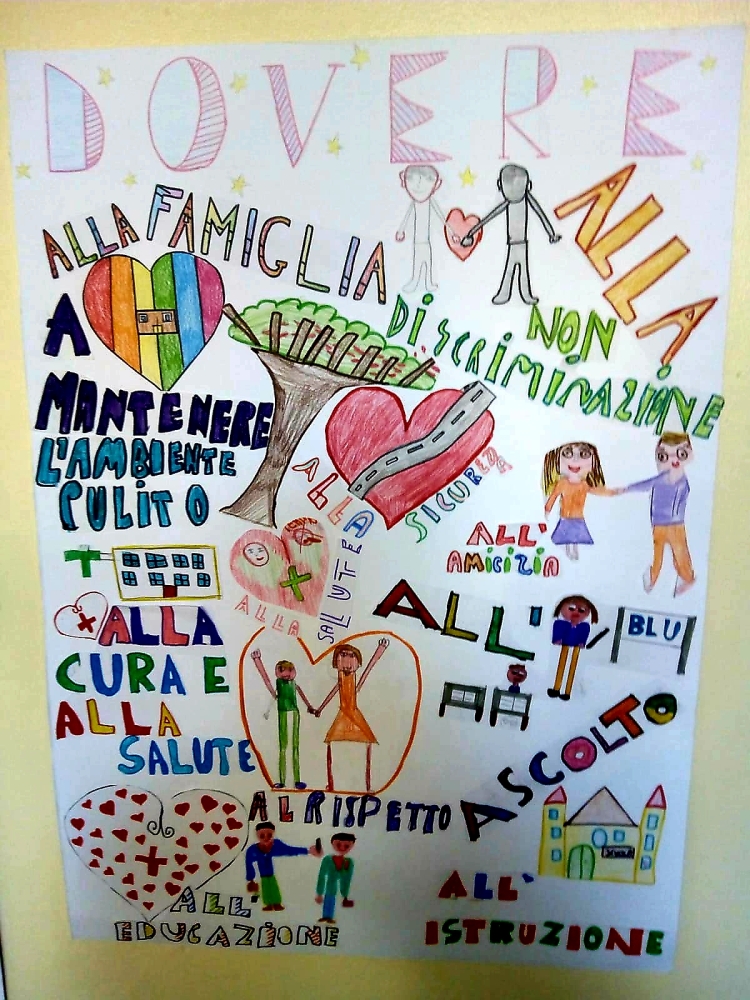 DOVERE
ALLA FAMIGLIA
ALLA
NON
DISCRIMINAZIONE
A
MANTENERE
L'AMBIENTE
PULITO
ALLA
SICUREZZA
ALL'
AMICIZIA
ALLA
SALUTE
ALLA
CURA E
ALLA
SALUTE
ALL'
BLU
ASCOLTO
AL RISPETTO
ALL'
EDUCAZIONE
SCUOLA
ALL'
ISTRUZIONE